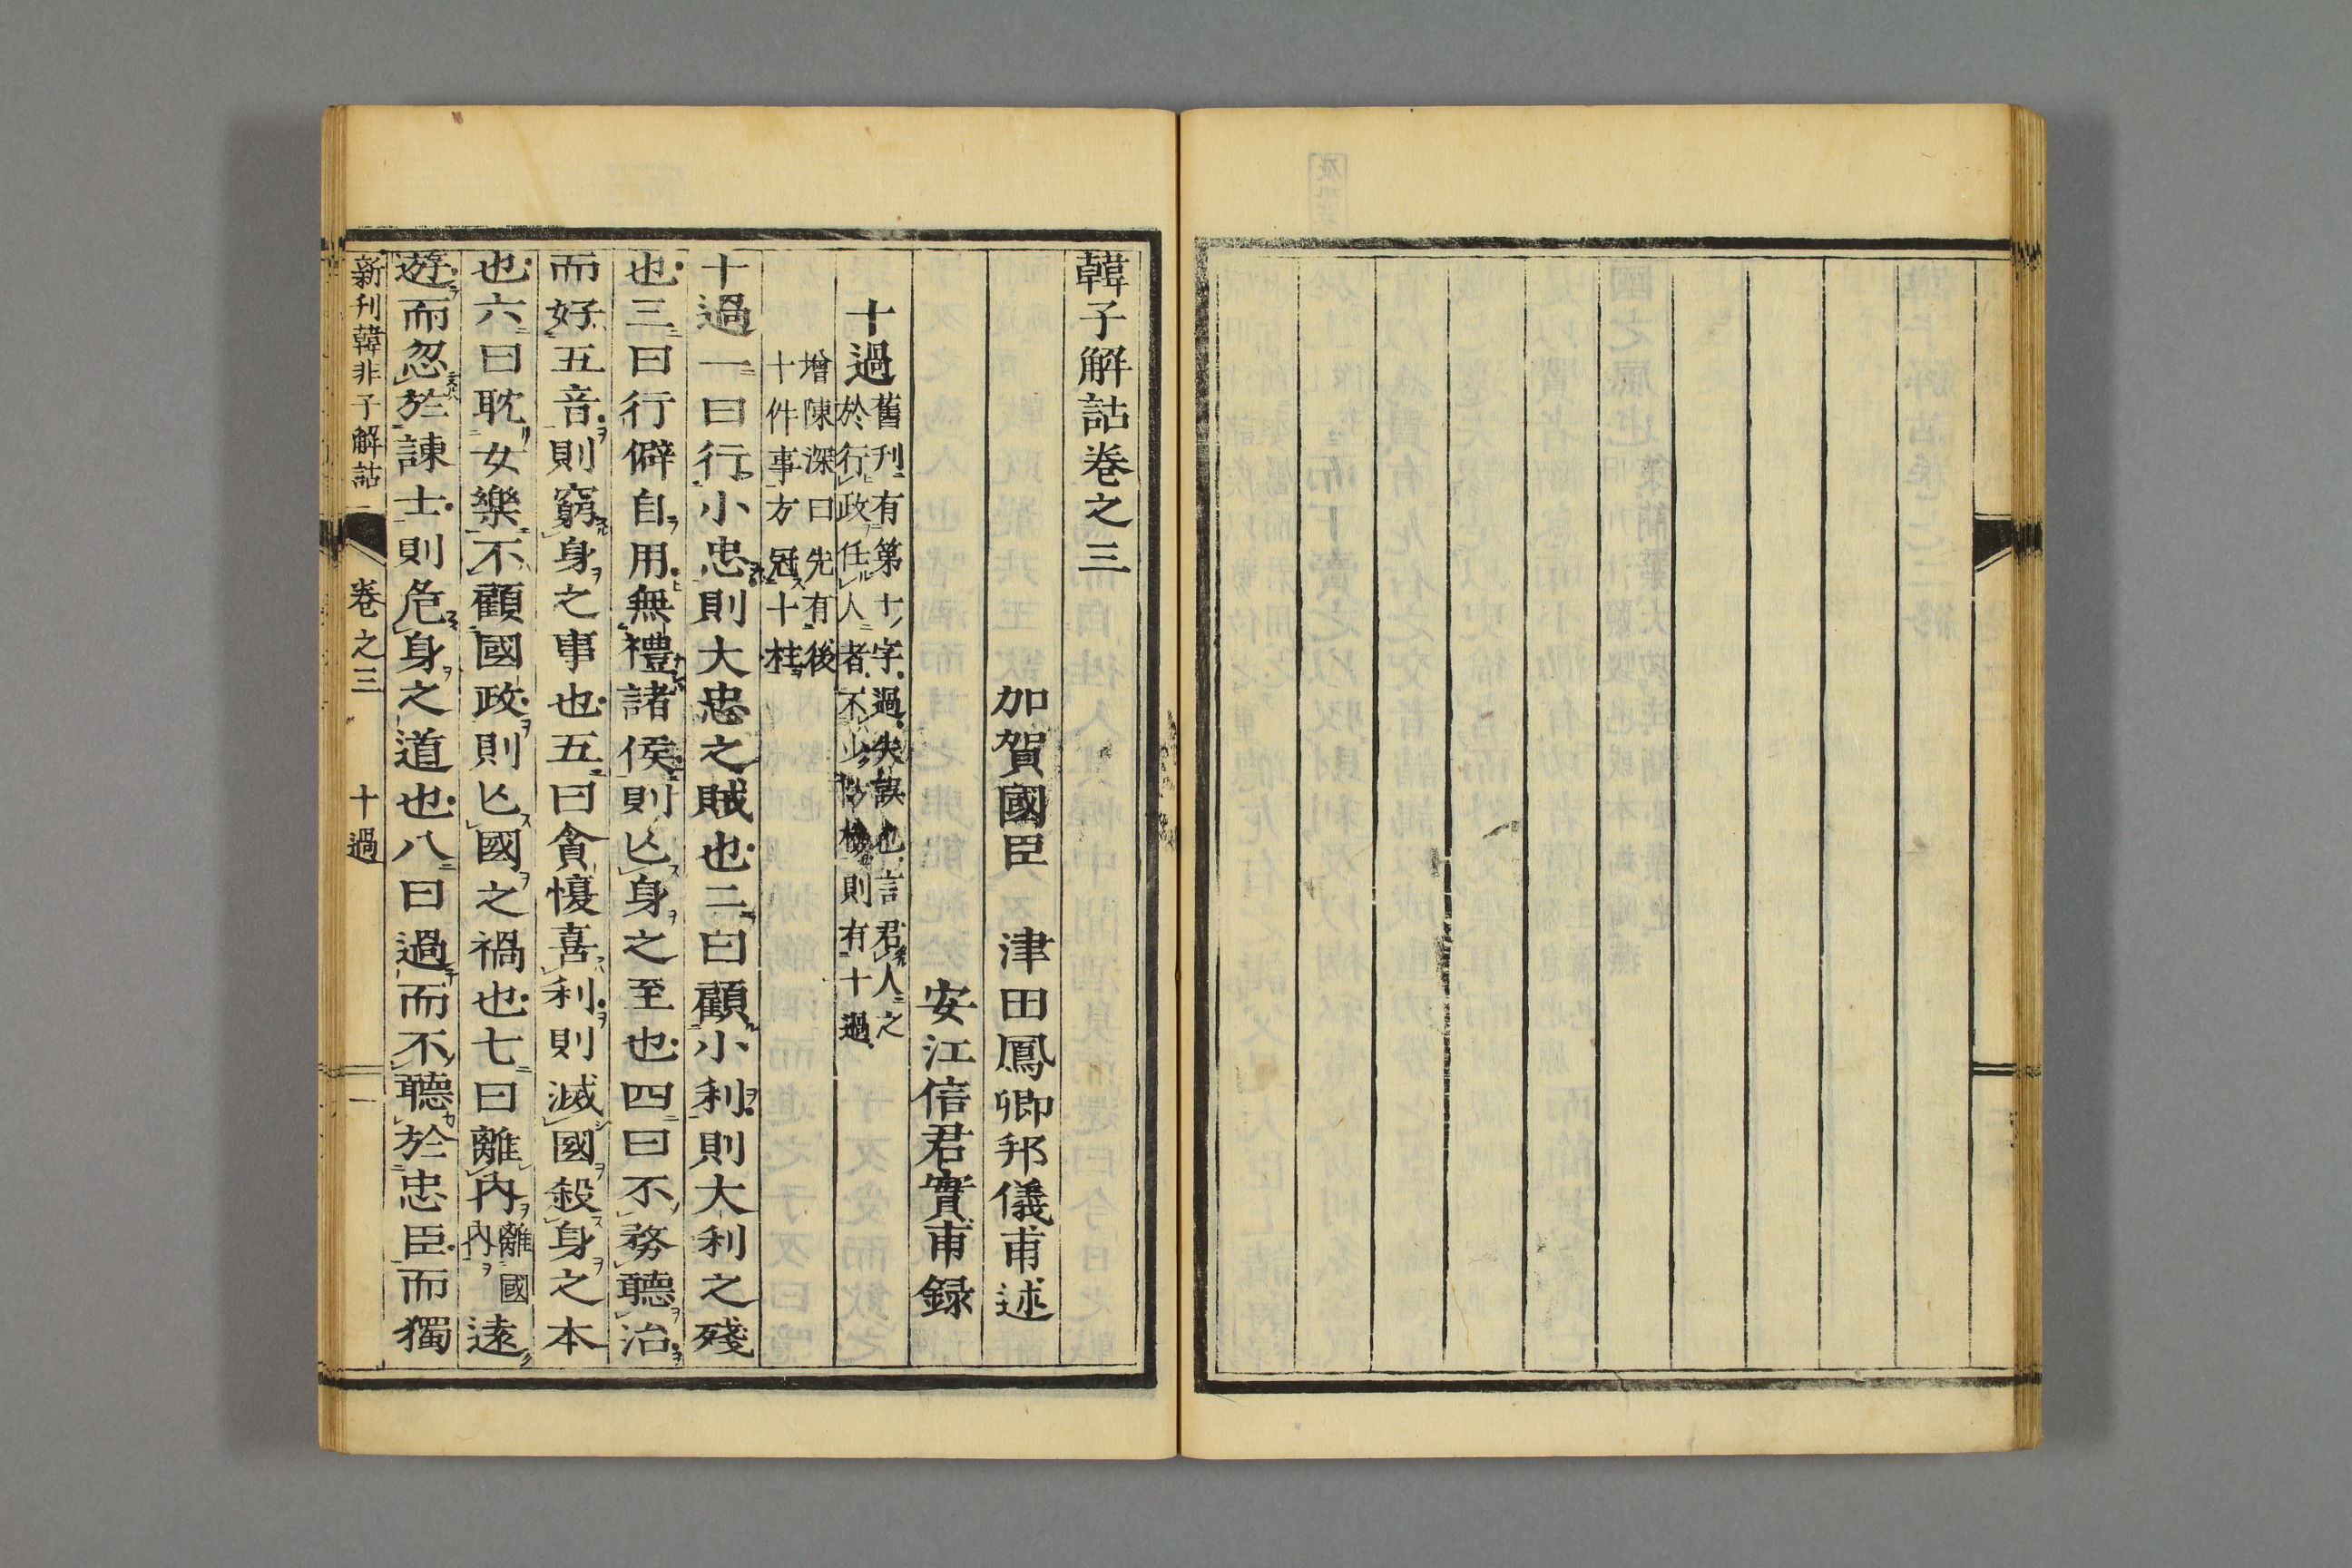 韓子解詁卷之三
加賀國臣 津田鳳卿邦儀甫述
安江信君實甫録
十過 舊刊有第十字過失誤也言君人之
於行政任人者不少檢則有十過
增陳深曰先有後
十件事方冠十柱
十過一曰行小忠則大忠之賊也二曰顧小利則大利之殘
也三曰行僻自用無禮諸侯則亾身之至也四曰不務聽治
而好五音則窮身之事也五曰貪愎喜利則滅國殺身之本
也六曰耽女樂不顧國政則亾國之禍也七曰離內 離國
內 遠
遊而忽於諫士則危身之道也八曰過而不聽於忠臣而獨
新刊韓非子解詁 卷之三 十過 一